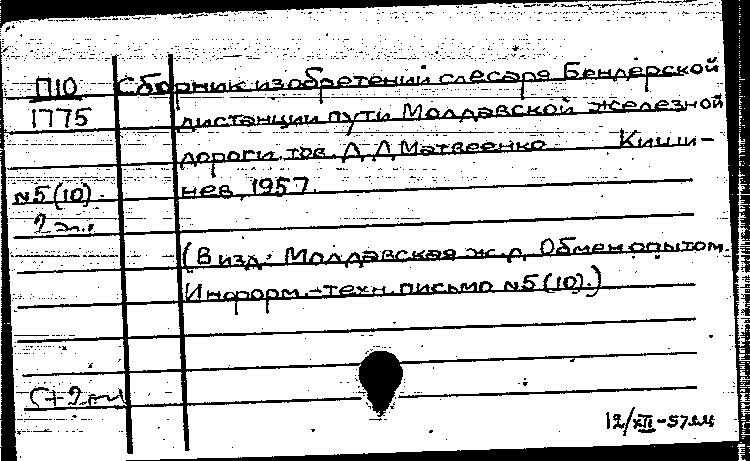 П10 Сборник изобретений слесаря Бендерской
1775 дистанции пути Молдавской железной
дороги тов. Д.Д. Матвеенко. Киши-
№5(10). нев, 1957.
2 эк.
(В изд: Молдавская ж.д. Обмен опытом.
Информ.-техн. письмо №5(10).)
12/XII-57